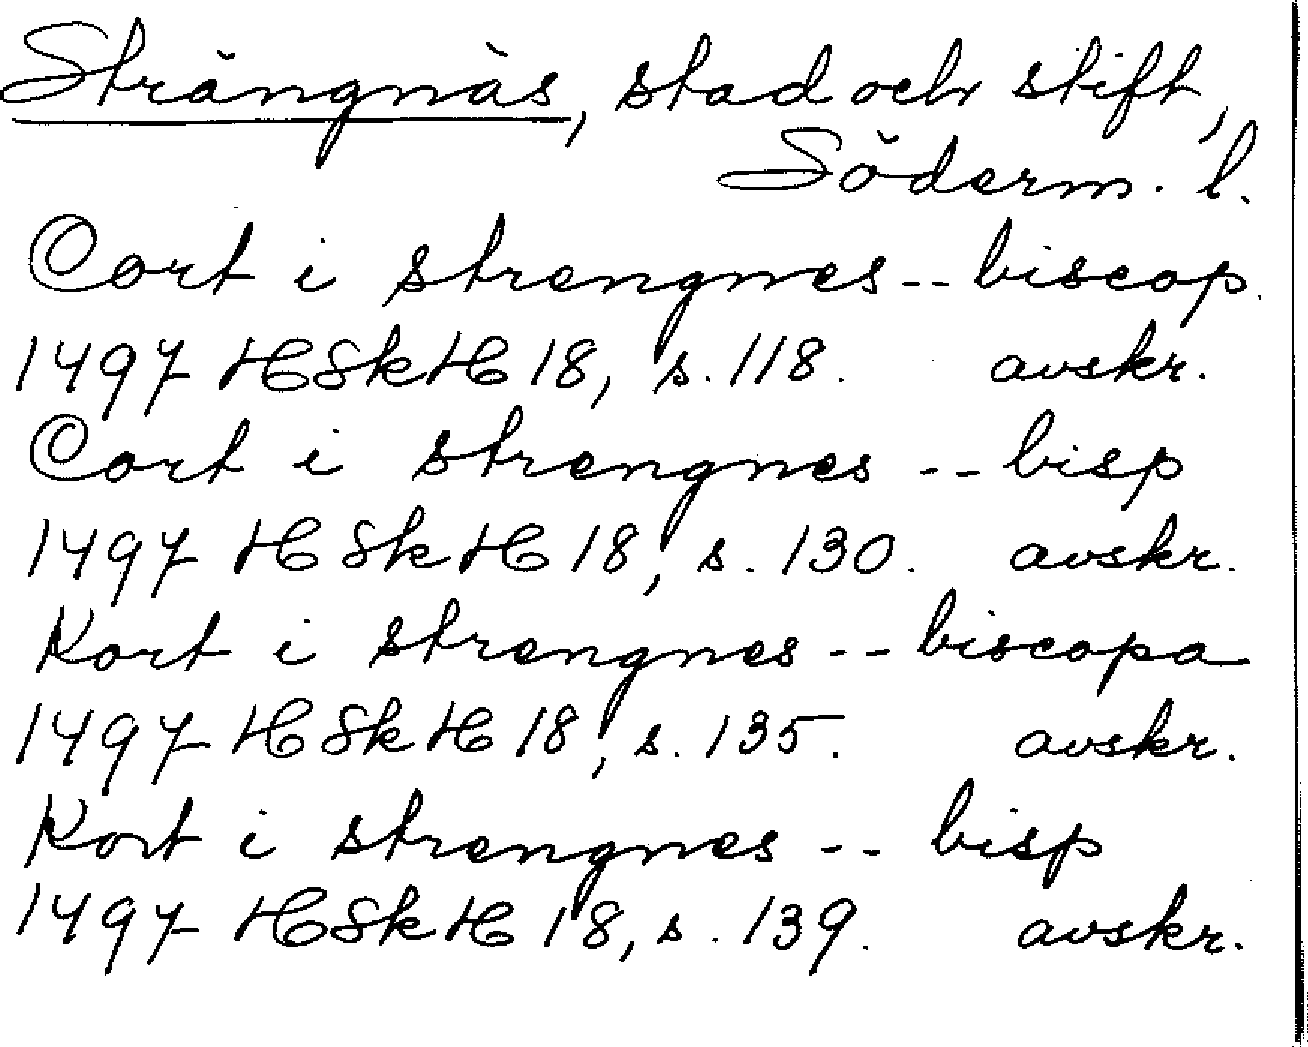 Strängnäs, stad och stift,
Söderm. l.
Cort i strengnes -- biscop.
1497 HSkH 18, s. 118. avskr.
Cort i strengnes -- bisp
1497 HSkH 18, s. 130. avskr.
Kort i strengnes -- biscopa
1497 HSkH 18, s. 135. avskr.
Kort i strengnes -- bisp
1497 HSkH 18, s. 139. avskr.